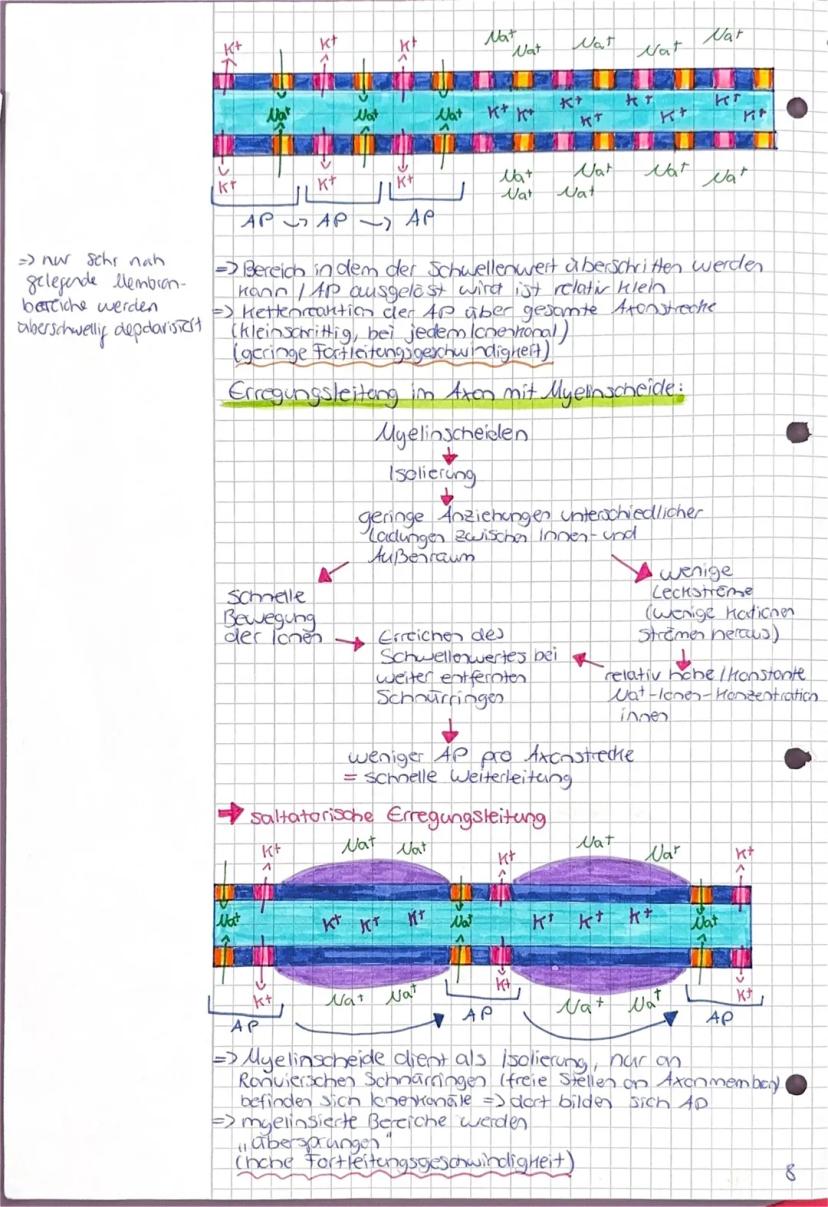 K+ K+ K+ Na+ Na+ Na+ Na+ Na+
Na+ Na+ Na+ K+ K+ K+ K+ K+ K+ K+ K+
K+ K+ K+ Na+ Na+ Na+ Na+ Na+ Na+
AP -> AP -> AP
=> nur sehr nah
gelegende Membran-
bereiche werden
überschwellig depolarisiert
=> Bereich in dem der Schwellenwert überschritten werden
kann / AP ausgelöst wird ist relativ klein
=> Kettenreaktion der AP über gesamte Axonstrecke
(kleinschrittig, bei jedem Ionenkanal)
(geringe Fortleitungsgeschwindigkeit)
Erregungsleitung im Axon mit Myelinscheide:
Myelinscheiden
Isolierung
geringe Anziehungen unterschiedlicher
Ladungen zwischen Innen- und
Außenraum
schnelle
Bewegung
der Ionen
wenige
Leckströme
(wenige Kationen
strömen heraus)
Erreichen des
Schwellenwertes bei
weiter entfernten
Schnürringen
relativ hohe / konstante
Na+-Ionen-Konzentration
innen
weniger AP pro Axonstrecke
= schnelle Weiterleitung
→ saltatorische Erregungsleitung
K+ Na+ Na+ K+ Na+ Na+ K+
Na+ K+ K+ K+ Na+ K+ K+ K+ Na+
K+ Na+ Na+ K+ Na+ Na+ K+
AP AP AP
=> Myelinscheide dient als Isolierung, nur an
Ranvierschen Schnürringen (freie Stellen an Axonmembran)
befinden sich Ionenkanäle => dort bilden sich AP
=> myelinsierte Bereiche werden
„übersprungen"
(hohe Fortleitungsgeschwindigkeit)
8